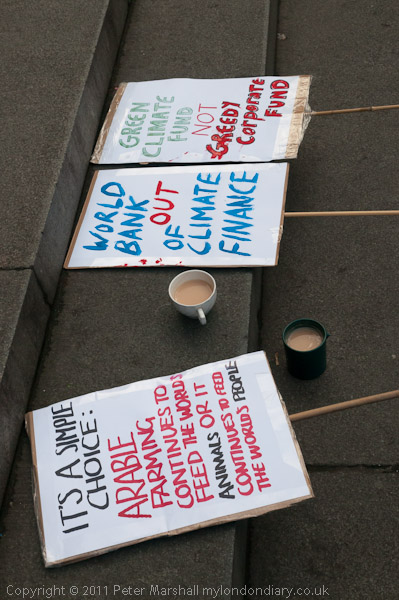 GREEN
CLIMATE
FUND
NOT
GREEDY
CORPORATE
FUND
WORLD
BANK
OUT
OF
CLIMATE
FINANCE
IT'S A SIMPLE
CHOICE:
ARABLE
FARMING
CONTINUES TO
FEED THE WORLDS
ANIMALS OR IT
CONTINUES TO FEED
THE WORLDS PEOPLE
Copyright © 2011 Peter Marshall mylondondiary.co.uk